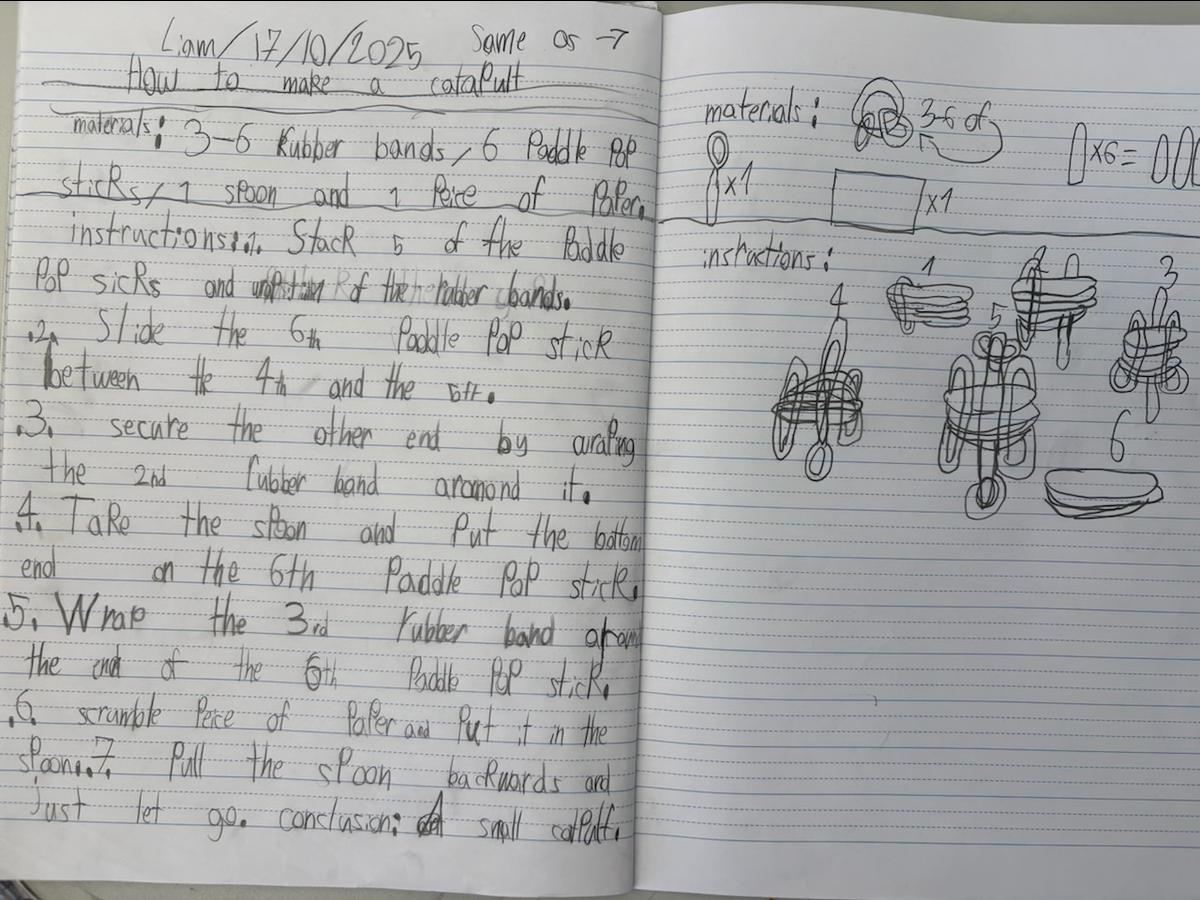 Liam/17/10/2025 Same as →
How to make a catapult
materials: 3-6 Rubber bands/6 Paddle Pop
sticks/1 spoon and 1 Peice of Paper.
instructions:.1. Stack 5 of the Paddle
Pop sicks and of the rubber bands.
.2. Slide the 6th Paddle Pop stick
between the 4th and the 5ft.
.3. secure the other end by
the 2nd rubber band aromond it.
.4. Take the spoon and Put the bottom
end on the 6th Paddle Pop stick.
.5. Wrap the 3rd rubber band aroun
the end of the 6th Paddle Pop stick.
.6. scramble Peice of PaPer and Put it in the
spoon..7. Pull the spoon backwards and
just let go. conclusion: A small catPult.
materials: 3-6 of
x1 x1 x6=
instractions:
1 2 3
4 5
6